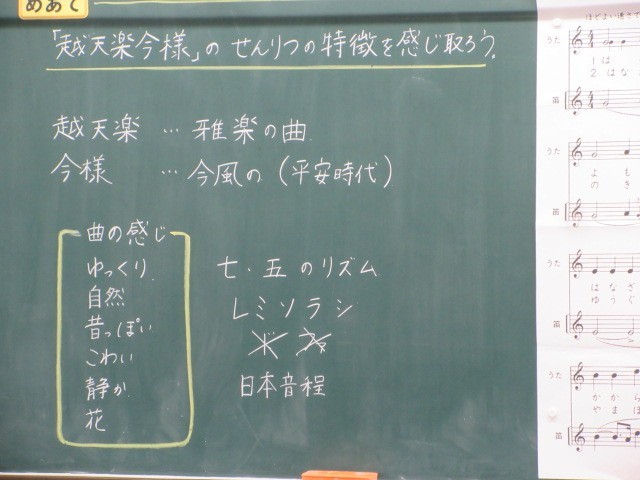 めあて
「越天楽今様」の せんりつの特徴を感じ取ろう。
越天楽 … 雅楽の曲
今様 … 今風の (平安時代)
曲の感じ
ゆっくり
自然
昔っぽい
こわい
静か
花
七・五のリズム
レミソラシ
日本音程
うた
1 は
2 はな
笛
うた
よ も
の き
笛
うた
は な ざ
ゆ う ぐ
笛
うた
か か ら
や ま ほ
笛